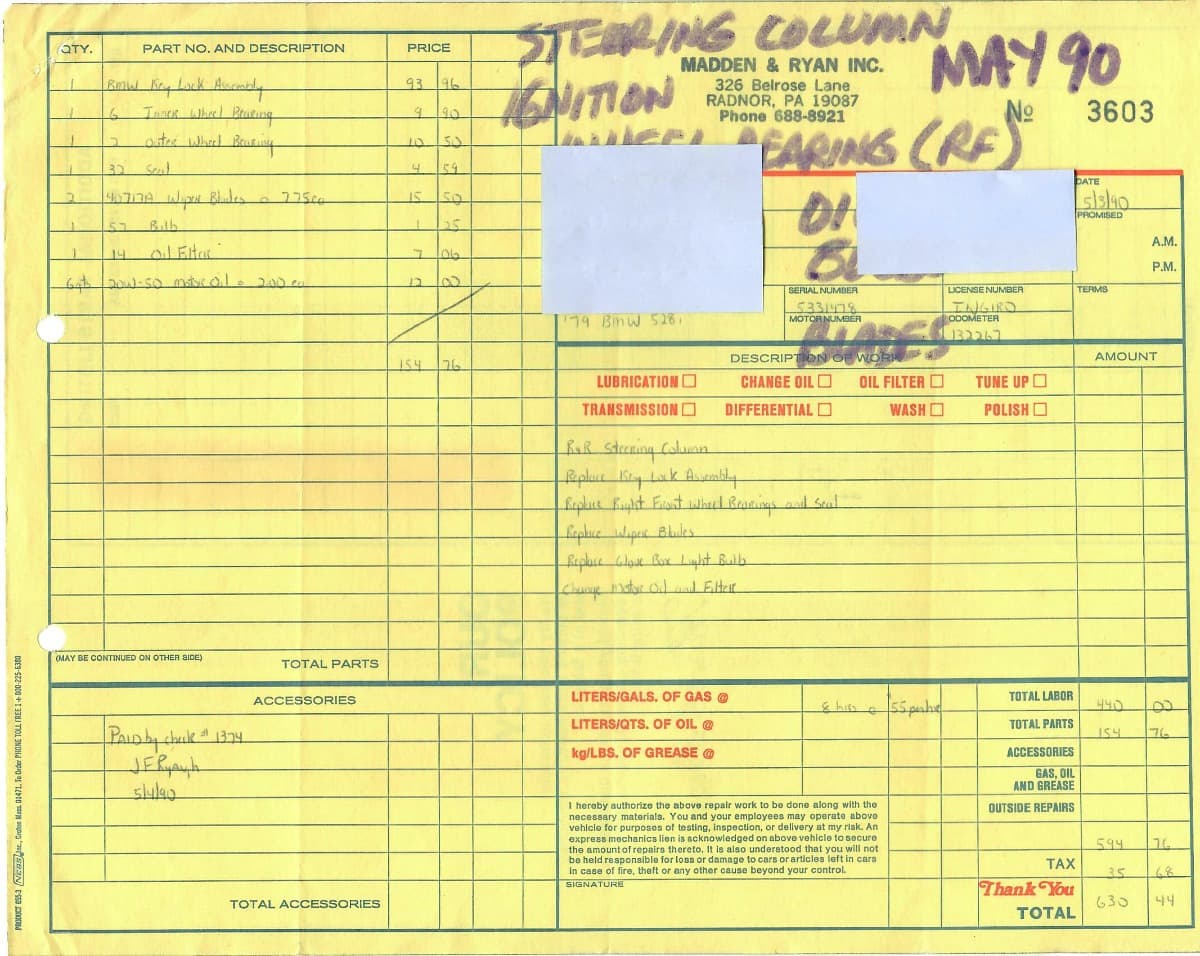 STEERING COLUMN
MAY 90
IGNITION
WHEEL BEARING (RF)
BLADES
MADDEN & RYAN INC.
326 Belrose Lane
RADNOR, PA 19087
Phone 688-8921
No 3603
QTY. PART NO. AND DESCRIPTION PRICE
1 BMW Key Lock Assembly 93 96
1 6 Inner Wheel Bearing 9 90
1 2 Outer Wheel Bearing 10 50
1 32 Seal 4 59
2 40717A Wiper Blades @ 7.75ea 15 50
1 57 Bulb 1 25
1 14 Oil Filter 7 06
6qts 20W-50 Motor Oil @ 2.00 ea 12 00
154 76
(MAY BE CONTINUED ON OTHER SIDE) TOTAL PARTS
DATE
5/3/90
PROMISED
A.M.
P.M.
SERIAL NUMBER LICENSE NUMBER TERMS
5331478
MOTOR NUMBER ODOMETER
'79 BMW 528i 132267
DESCRIPTION OF WORK AMOUNT
LUBRICATION CHANGE OIL OIL FILTER TUNE UP
TRANSMISSION DIFFERENTIAL WASH POLISH
R&R Steering Column
Replace Key Lock Assembly
Replace Right Front Wheel Bearings and Seal
Replace Wiper Blades
Replace Glove Box Light Bulb
Change Motor Oil and Filter
ACCESSORIES
PAID by check # 1374
5/4/90
TOTAL ACCESSORIES
LITERS/GALS. OF GAS @
LITERS/QTS. OF OIL @
kg/LBS. OF GREASE @
8 hrs @ $55 per hr
TOTAL LABOR 440 00
TOTAL PARTS 154 76
ACCESSORIES
GAS, OIL
AND GREASE
OUTSIDE REPAIRS
594 76
TAX 35 68
Thank You
TOTAL 630 44
I hereby authorize the above repair work to be done along with the
necessary materials. You and your employees may operate above
vehicle for purposes of testing, inspection, or delivery at my risk. An
express mechanics lien is acknowledged on above vehicle to secure
the amount of repairs thereto. It is also understood that you will not
be held responsible for loss or damage to cars or articles left in cars
in case of fire, theft or any other cause beyond your control.
SIGNATURE
PRODUCT 655-3 NEBS Inc., Groton Mass. 01471. To Order PHONE TOLL FREE 1 + 800-225-6380